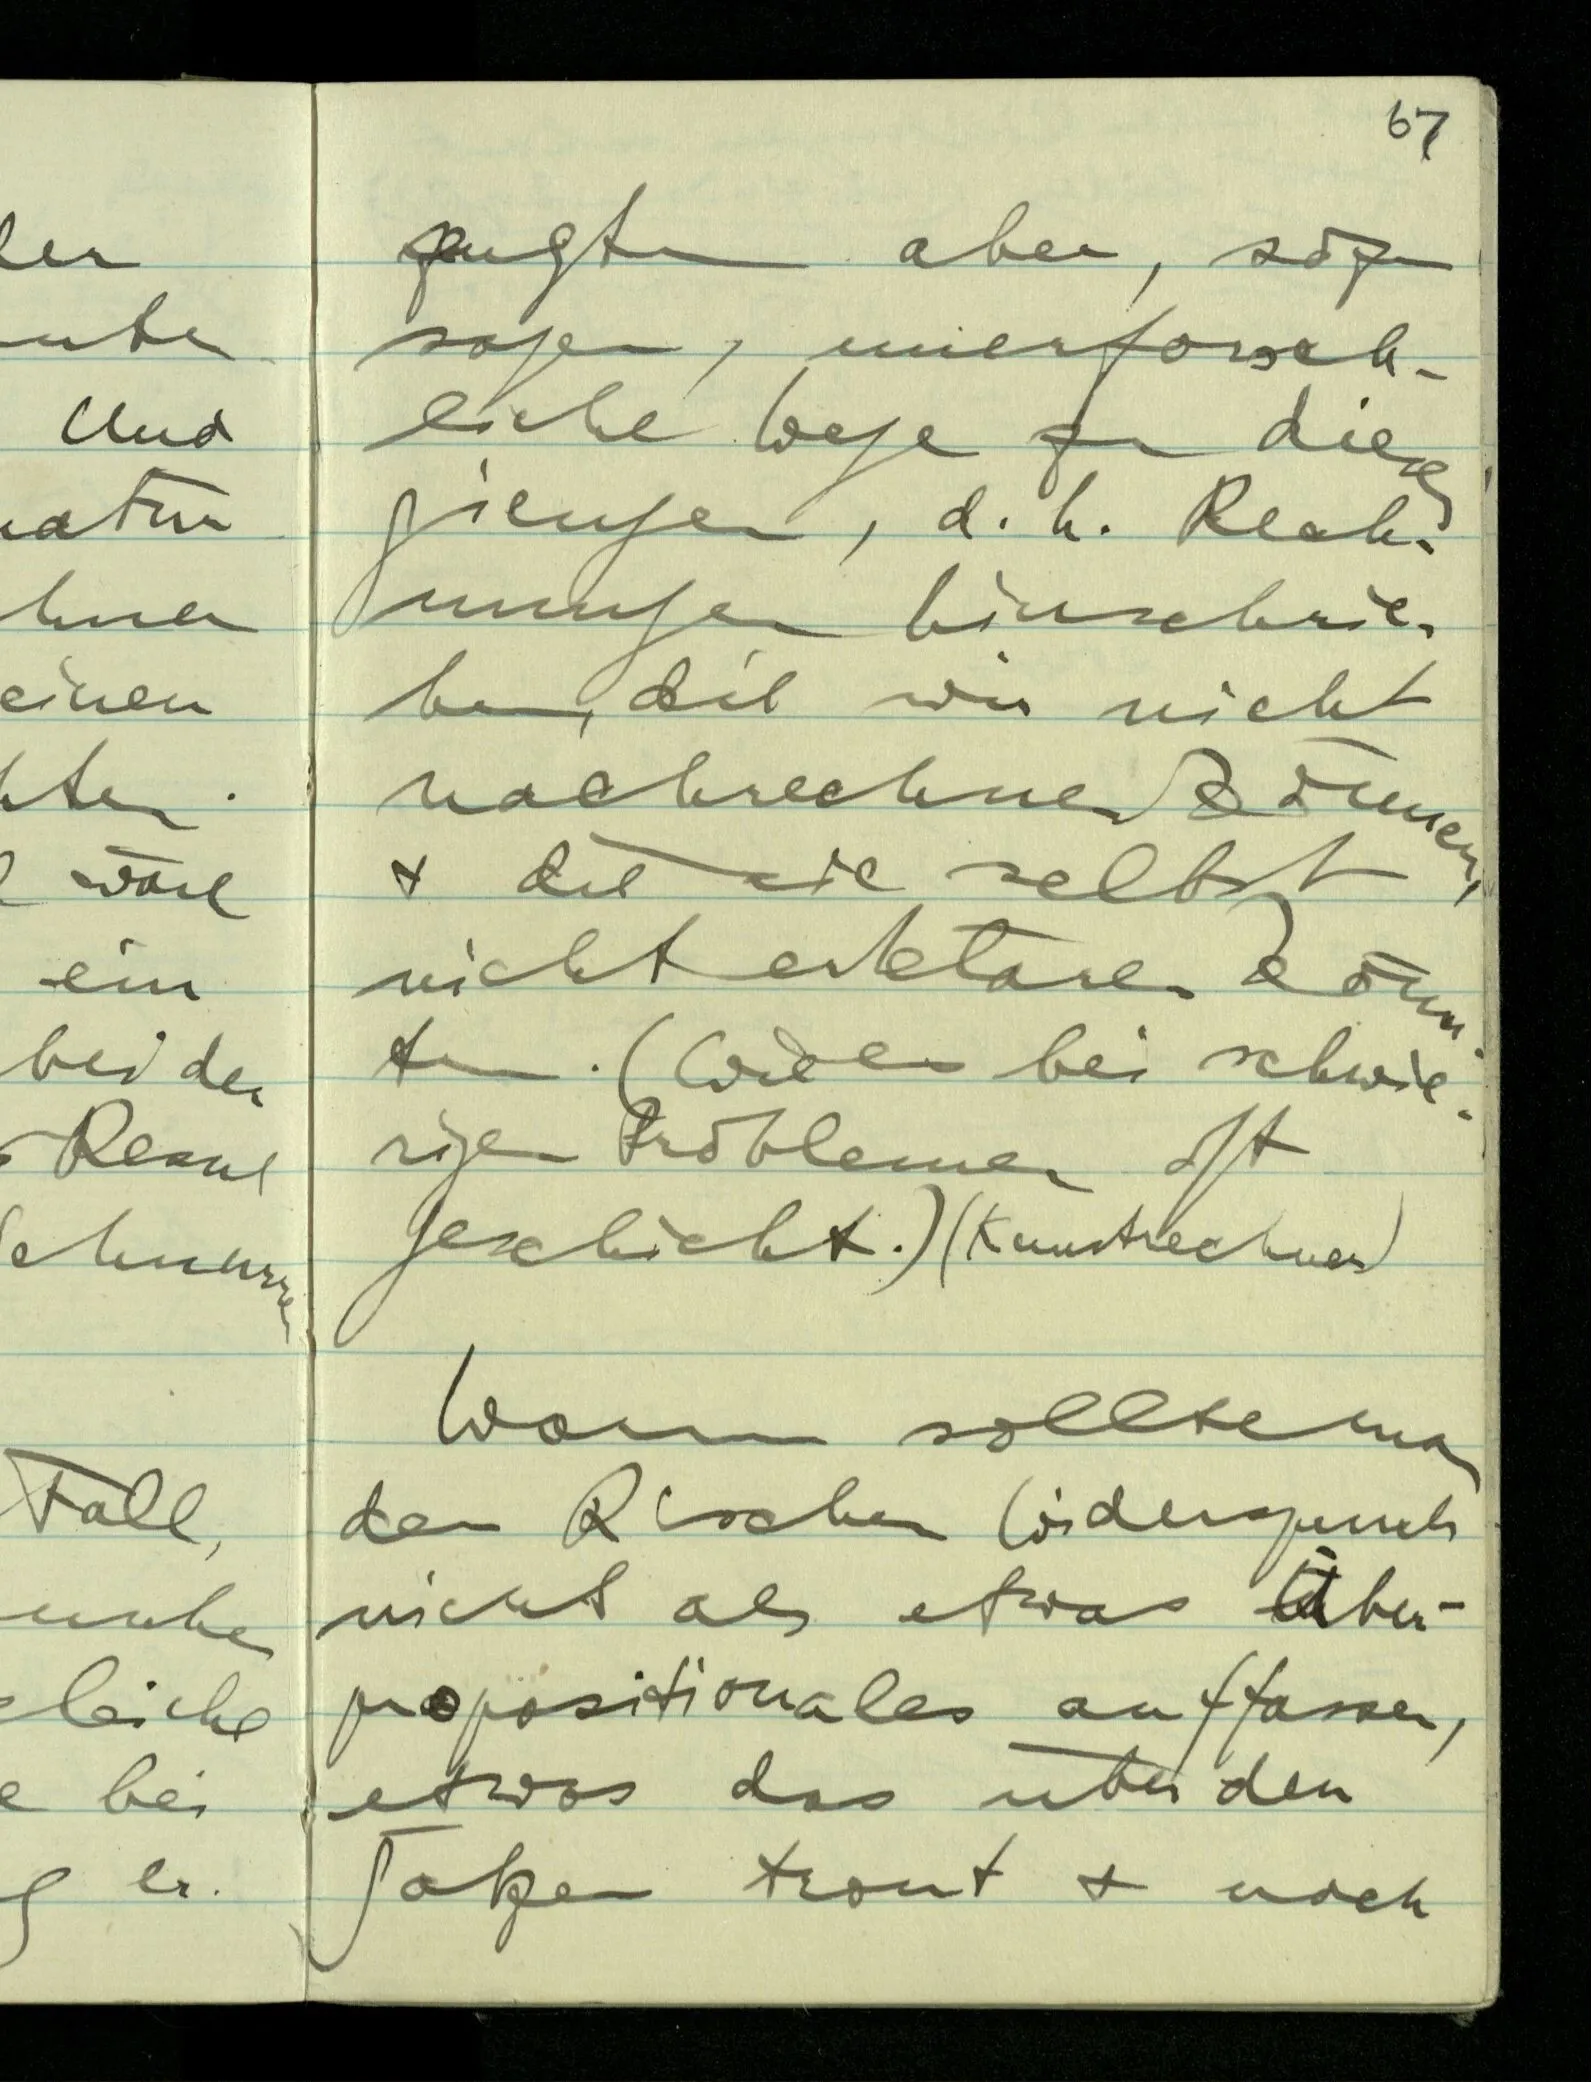 ler
Und
natür
hnen
einen
hten.
wäre
ein
bei der
Resul
Fall,
gleiche
e bei
g er.
67
aber, sozu
sagen, unerforsch-
liche Wege zu diesen
giengen, d.h. Rech-
nungen hinschrie-
ben, die wir nicht
nachrechnen können,
& die sie selbst
nicht erklären könn-
ten. (Wie es bei schwie-
rigen Problemen oft
geschieht.) (Kunstrechner)
Warum sollte man
den R'schen Widerspruch
nicht als etwas Über-
propositionales auffassen,
etwas das über den
Sätzen tront & noch